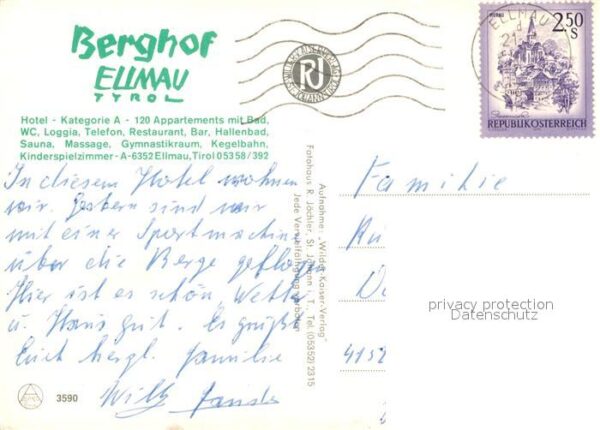 Berghof
ELLMAU
TYROL
Hotel - Kategorie A - 120 Appartements mit Bad,
WC, Loggia, Telefon, Restaurant, Bar, Hallenbad,
Sauna, Massage, Gymnastikraum, Kegelbahn,
Kinderspielzimmer - A-6352 Ellmau, Tirol 05358/392
In diesem Hotel wohnen
wir. Gestern sind wir
mit einer Sportmachine
über die Berge geflogen
Hier ist es schön, Wetter
u. Haus gut. Es grüßt
Euch herzl. familie
Willy
3590
Aufnahme: „Wilder-Kaiser-Verlag"
Fotohaus R. Jöchler, St. Johann i. T., Tel. (05352) 2315
Jede Vervielfältigung verboten
ELLMAU
2.50
S
REPUBLIK ÖSTERREICH
Familie
415
privacy protection
Datenschutz